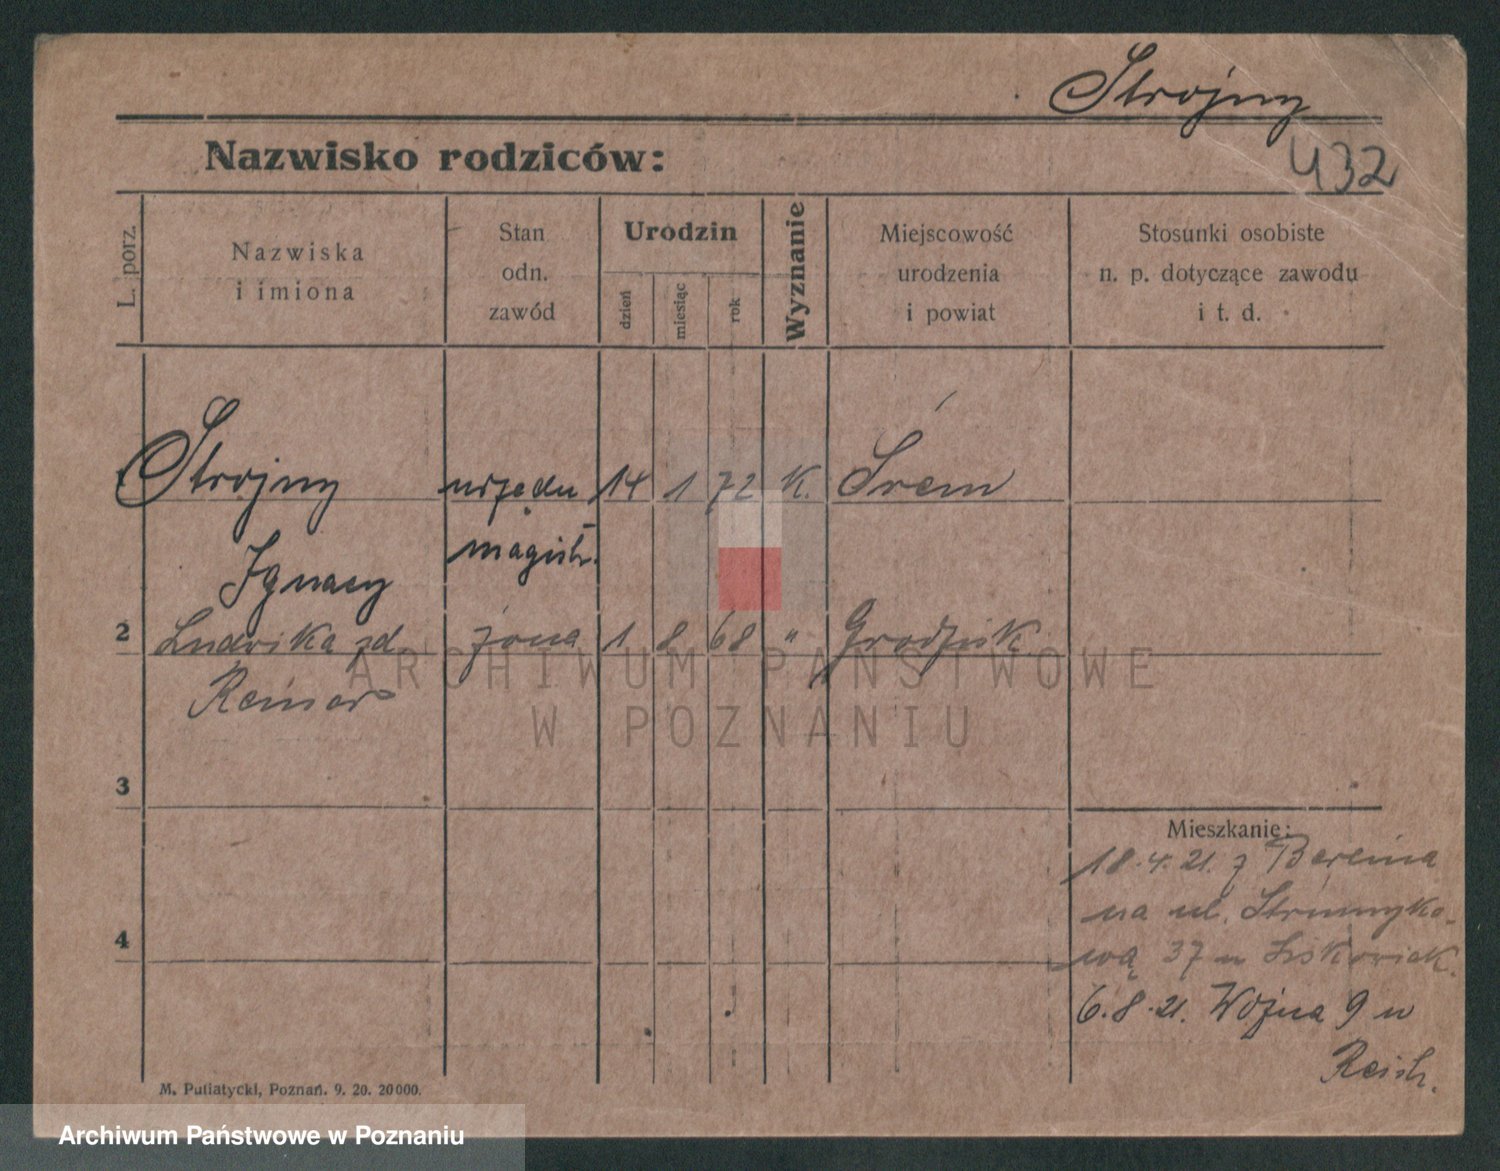 Strojny
Nazwisko rodziców:
432
L. porz.
Nazwiska
i imiona
Stan
odn.
zawód
Urodzin
dzień
miesiąc
rok
Wyznanie
Miejscowość
urodzenia
i powiat
Stosunki osobiste
n. p. dotyczące zawodu
i t. d.
Strojny urzędn 14 1 72 K. Śrem
Ignacy magistr.
2 Ludwika zd żona 1 8 68 " Grodzisk
3
4
Mieszkanie:
18.4.21. z
na ul. Strumyko-
wą 37 u
6.8.21. Woźna 9 u
M. Putiatycki, Poznań. 9. 20. 20000.
ARCHIWUM PAŃSTWOWE
W POZNANIU
Archiwum Państwowe w Poznaniu